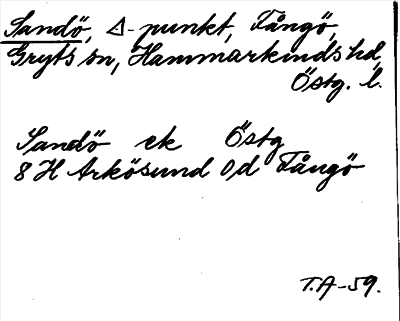 Sandö, △-punkt, Fångö,
Gryts sn, Hammarkinds hd,
Östg. l.
Sandö ek Östg
8 H Arkösund 0d Fångö
T.A-59.